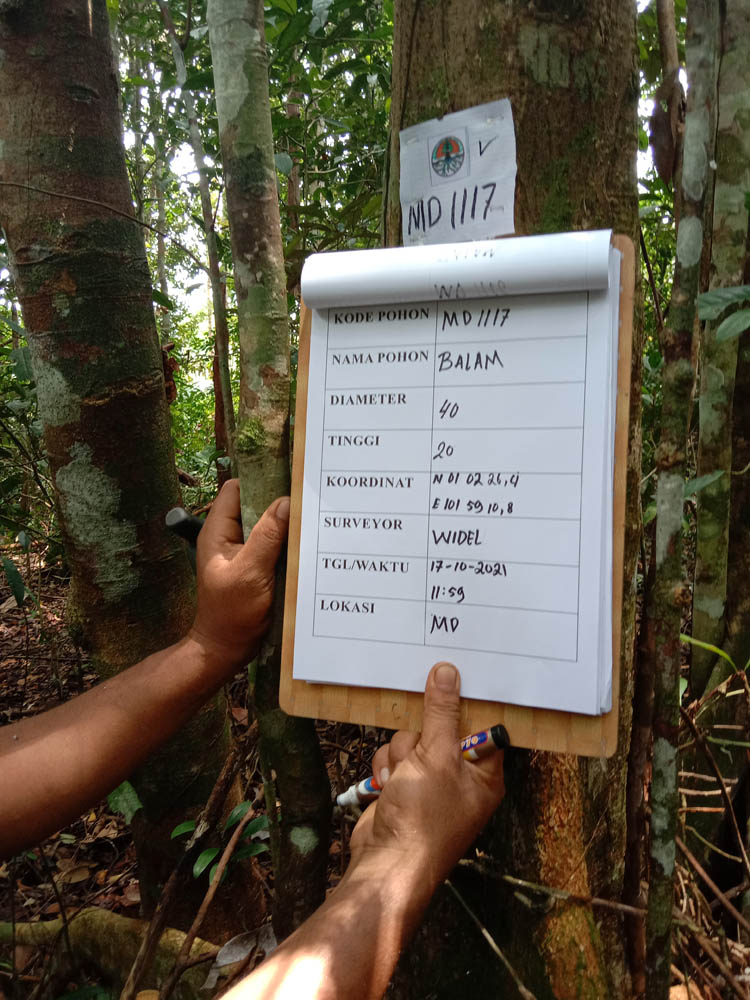 MD 1117
KODE POHON MD 1117
NAMA POHON BALAM
DIAMETER 40
TINGGI 20
KOORDINAT N 01 02 26,4
E 101 59 10,8
SURVEYOR WIDEL
TGL/WAKTU 17-10-2021
11:59
LOKASI MD